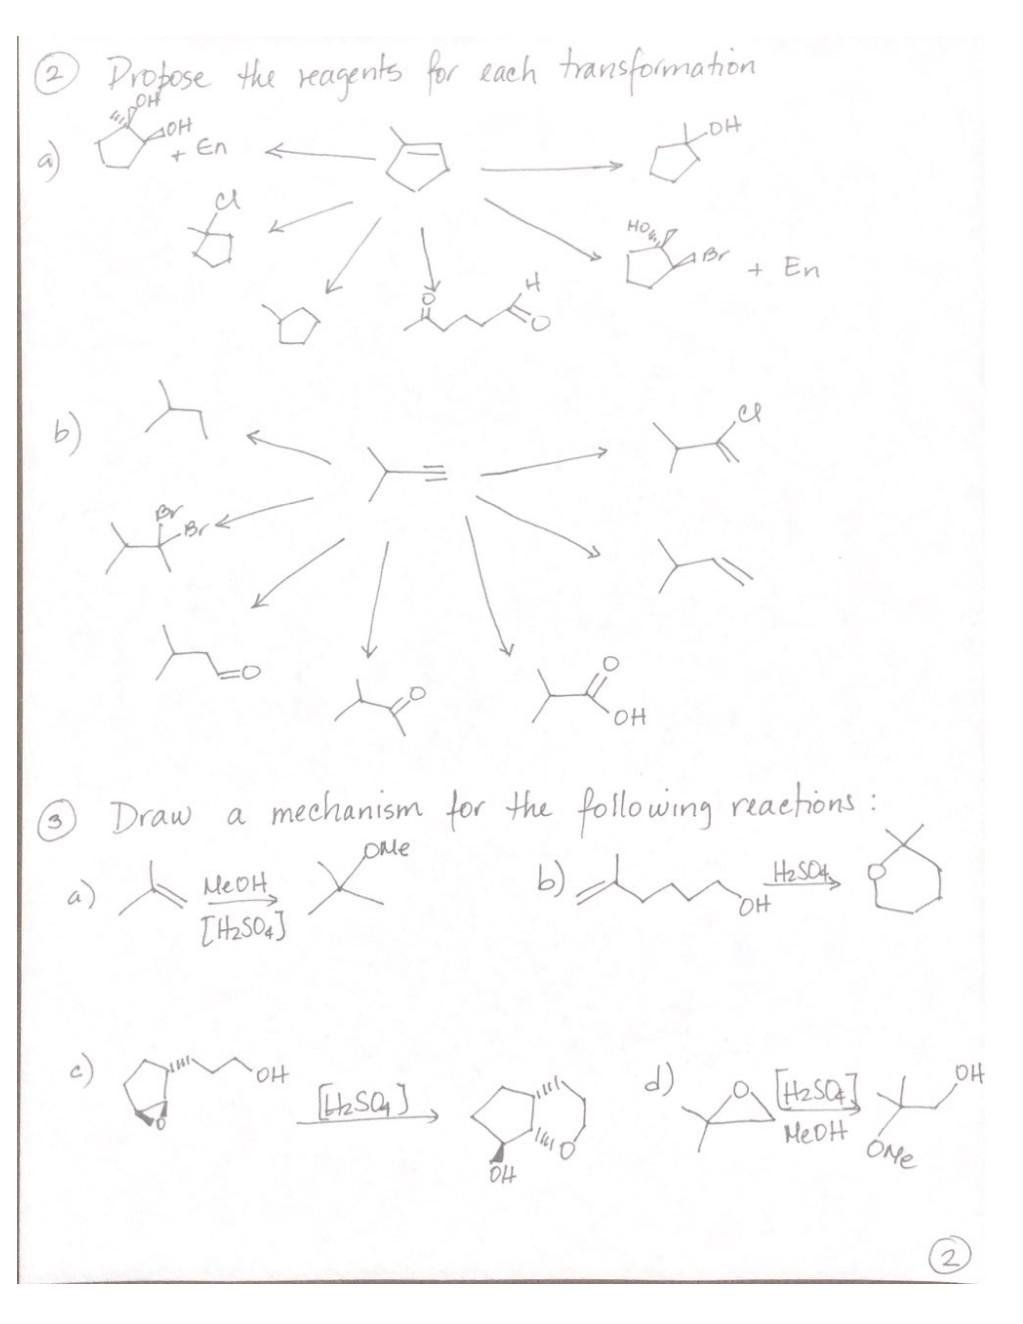 ② Propose the reagents for each transformation
OH
OH
a) + En
OH
Cl
HO
Br + En
H
O
O
b)
Cl
Br
Br
O
O
O
OH
③ Draw a mechanism for the following reactions :
a) MeOH
[H2SO4]
OMe
b) OH
H2SO4
O
c) OH
O
[H2SO4]
O
OH
d) O
[H2SO4]
MeOH
OH
OMe
②